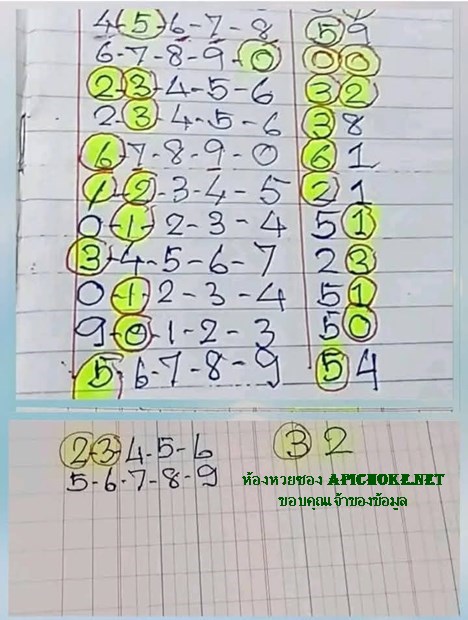 4-5-6-7-8 59
6-7-8-9-0 00
2-3-4-5-6 32
2-3-4-5-6 38
6-7-8-9-0 61
1-2-3-4-5 21
0-1-2-3-4 51
3-4-5-6-7 23
0-1-2-3-4 51
9-0-1-2-3 50
5-6-7-8-9 54
2-3-4-5-6 32
5-6-7-8-9
ห้องหวยซอง APICHOKE.NET
ขอบคุณเจ้าของข้อมูล